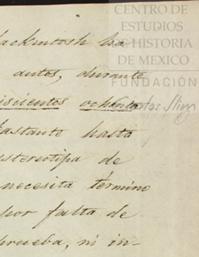 CENTRO DE
ESTUDIOS
DE HISTORIA
DE MEXICO
FUNDACIÓN
Mackintosh ha
autos, durante
ochenta
bastante hasta
estereotipa de
necesita término
por falta de
prueba, ni in-